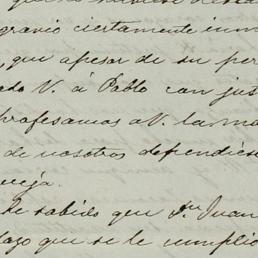 gravio ciertamente inm
, que apesar de su per
ado V. á Pablo con jus
profesamos a V. la ma
de nosotros dependiés
ueja.
he sabido que Dn. Juan
lazo que se le cumplio